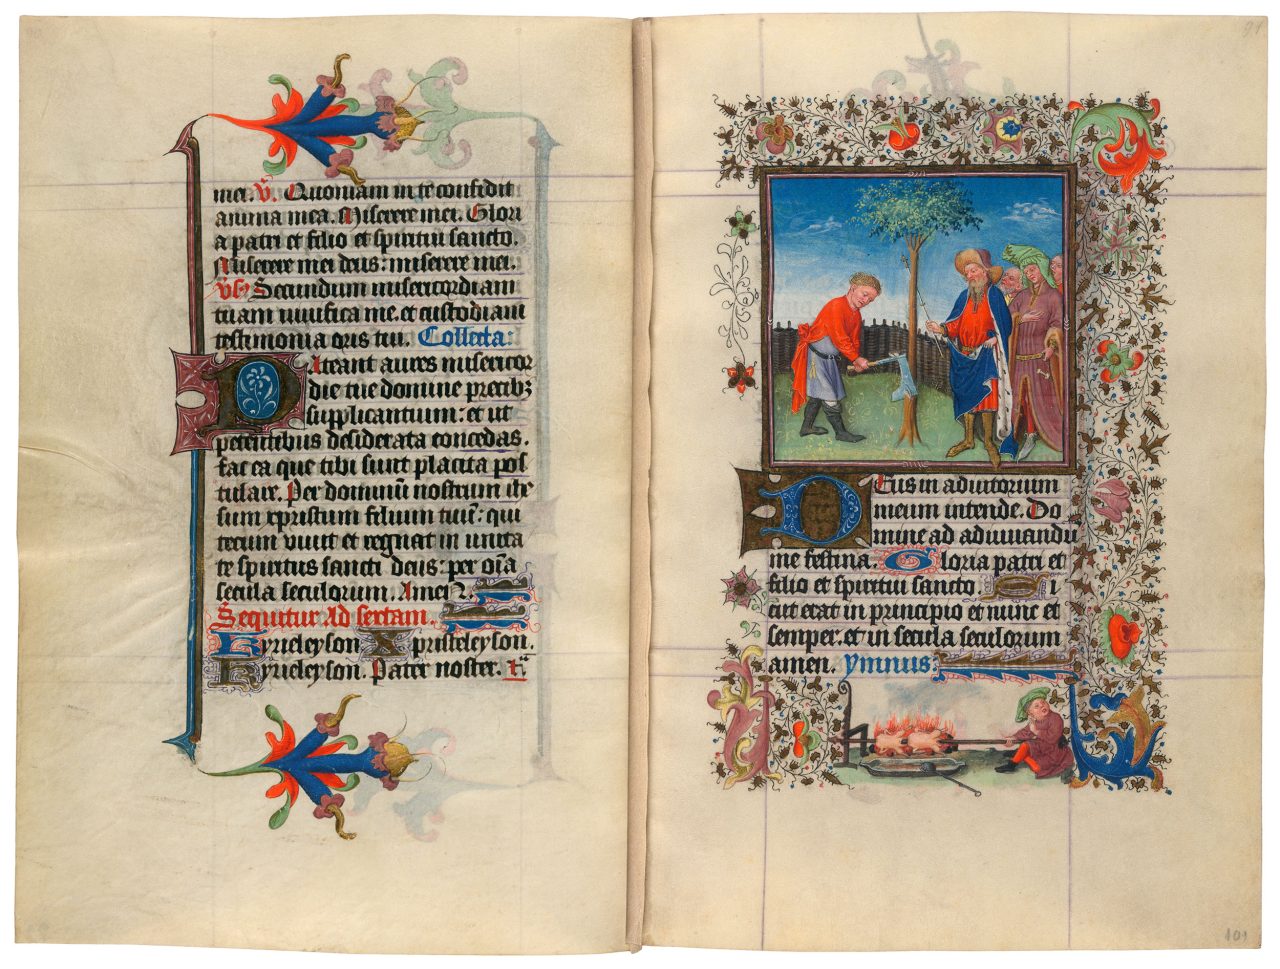 mei. V. Quoniam in te confidit
anima mea. Miserere mei. Glori
a patri et filio et spiritui sancto.
Miserere mei deus: miserere mei.
Vs. Secundum misericordiam
tuam vivifica me. et custodiam
testimonia oris tui. Collecta:
Pateant aures misericor
die tue domine precibz
supplicantium: et ut
petentibus desiderata concedas.
fac ea que tibi sunt placita pos
tulare. Per dominū nostrum ihe
sum xpristum filium tuū: qui
tecum vivit et regnat in unita
te spiritus sancti deus: per oīa
secula seculorum. Amen.
Sequitur Ad sextam.
Kyrieleyson Xpristeleyson.
Kyrieleyson. Pater noster.
91
Deus in adiutorium
meum intende. Do
mine ad adiuvandū
me festina. Gloria patri et
filio et spiritui sancto. Si
cut erat in principio et nunc et
semper. et in secula seculorum
amen. ymnus:
101